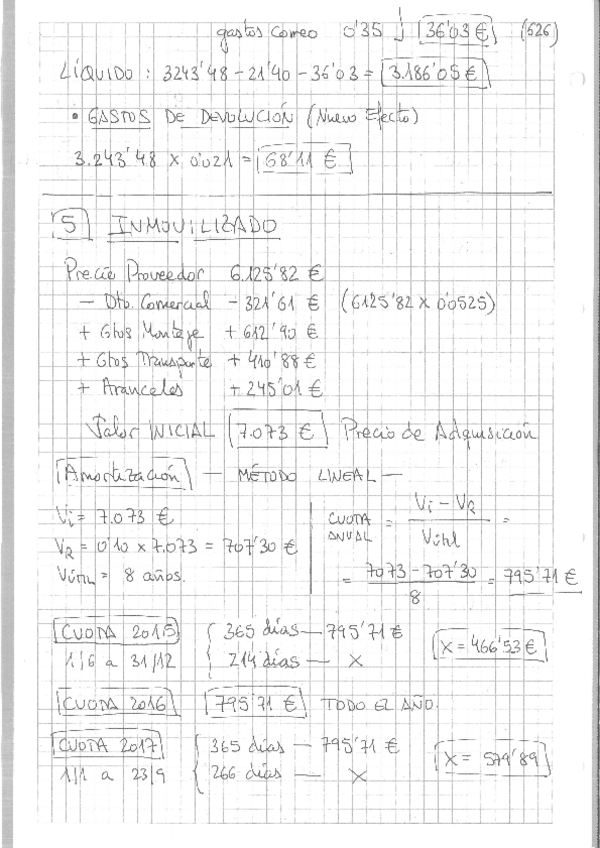 gastos correo 0'35 36'03 € (626)
LÍQUIDO : 3243'48 - 21'40 - 36'03 = 3.186'05 €
• GASTOS DE DEVOLUCIÓN (Nuevo Efecto)
3.243'48 x 0'021 = 68'11 €
5 INMOVILIZADO
Precio Proveedor 6.125'82 €
- Dto. Comercial - 321'61 € (6125'82 x 0'0525)
+ Gtos Montaje + 612'90 €
+ Gtos Transporte + 410'88 €
+ Aranceles + 245'01 €
Valor INICIAL 7.073 € Precio de Adquisición
Amortización — MÉTODO LINEAL —
Vi = 7.073 €
VR = 0'10 x 7.073 = 707'30 €
Vútil = 8 años.
CUOTA ANUAL = Vi - VR / Vútil =
= 7073 - 707'30 / 8 = 795'71 €
CUOTA 2015 365 días — 795'71 €
1/6 a 31/12 214 días — x
x = 466'53 €
CUOTA 2016 795'71 € TODO EL AÑO.
CUOTA 2017 365 días — 795'71 €
1/1 a 23/9 266 días — x
x = 579'89